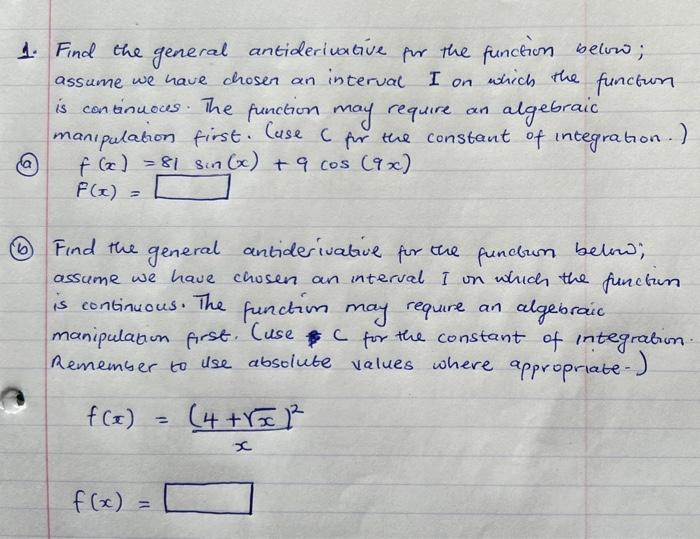 1. Find the general antiderivative for the function below;
assume we have chosen an interval I on which the function
is continuous. The function may require an algebraic
manipulation first. (use C for the constant of integration.)
(a) f(x) = 81 sin(x) + 9 cos (9x)
F(x) =
(b) Find the general antiderivative for the function below;
assume we have chosen an interval I on which the function
is continuous. The function may require an algebraic
manipulation first. (use C for the constant of integration.
Remember to use absolute values where appropriate.)
f(x) = (4 + √x)²
x
f(x) =